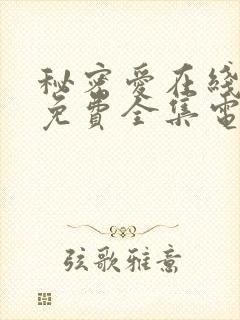 秘密愛在綫
免費全集電
弦歌雅意